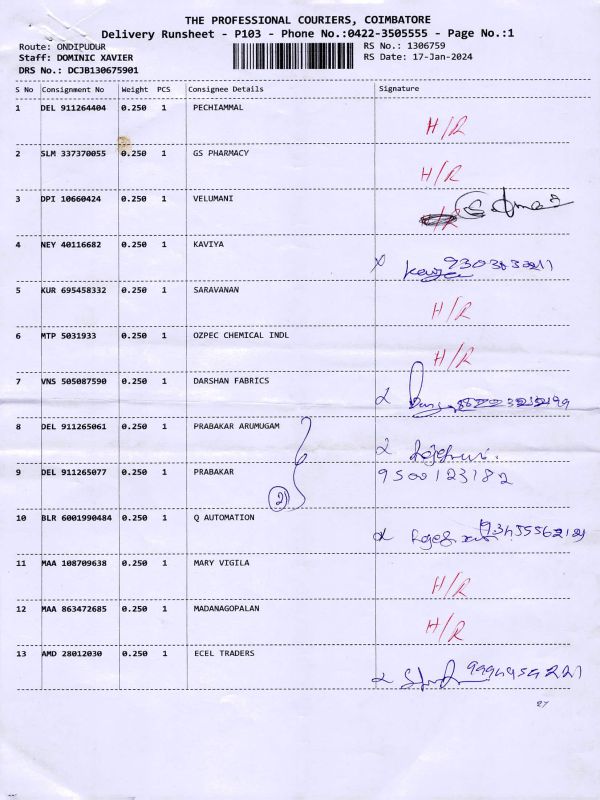 THE PROFESSIONAL COURIERS, COIMBATORE
Delivery Runsheet - P103 - Phone No.:0422-3505555 - Page No.:1
Route: ONDIPUDUR RS No.: 1306759
Staff: DOMINIC XAVIER RS Date: 17-Jan-2024
DRS No.: DCJB130675901
S No Consignment No Weight PCS Consignee Details Signature
1 DEL 911264404 0.250 1 PECHIAMMAL
H/R
2 SLM 337370055 0.250 1 GS PHARMACY
H/R
3 DPI 10660424 0.250 1 VELUMANI
H/R
4 NEY 40116682 0.250 1 KAVIYA
5 KUR 695458332 0.250 1 SARAVANAN
H/R
6 MTP 5031933 0.250 1 OZPEC CHEMICAL INDL
H/R
7 VNS 505087590 0.250 1 DARSHAN FABRICS
8 DEL 911265061 0.250 1 PRABAKAR ARUMUGAM
9 DEL 911265077 0.250 1 PRABAKAR 9500123182
2
10 BLR 6001990484 0.250 1 Q AUTOMATION
11 MAA 108709638 0.250 1 MARY VIGILA
H/R
12 MAA 863472685 0.250 1 MADANAGOPALAN
H/R
13 AMD 28012030 0.250 1 ECEL TRADERS
27